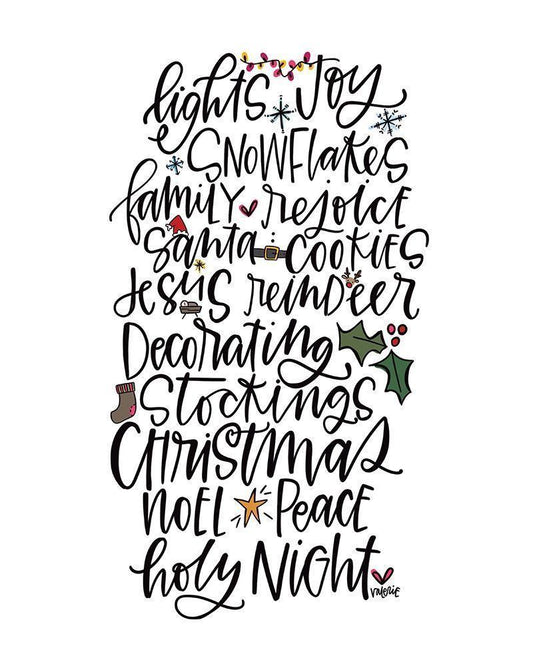 lights Joy
SNOWFlakes
family rejoice
Santa COOKiES
Jesus reinDeer
Decorating
Stockings
CHristmas
NOEl Peace
holy NiGHt
Valerie